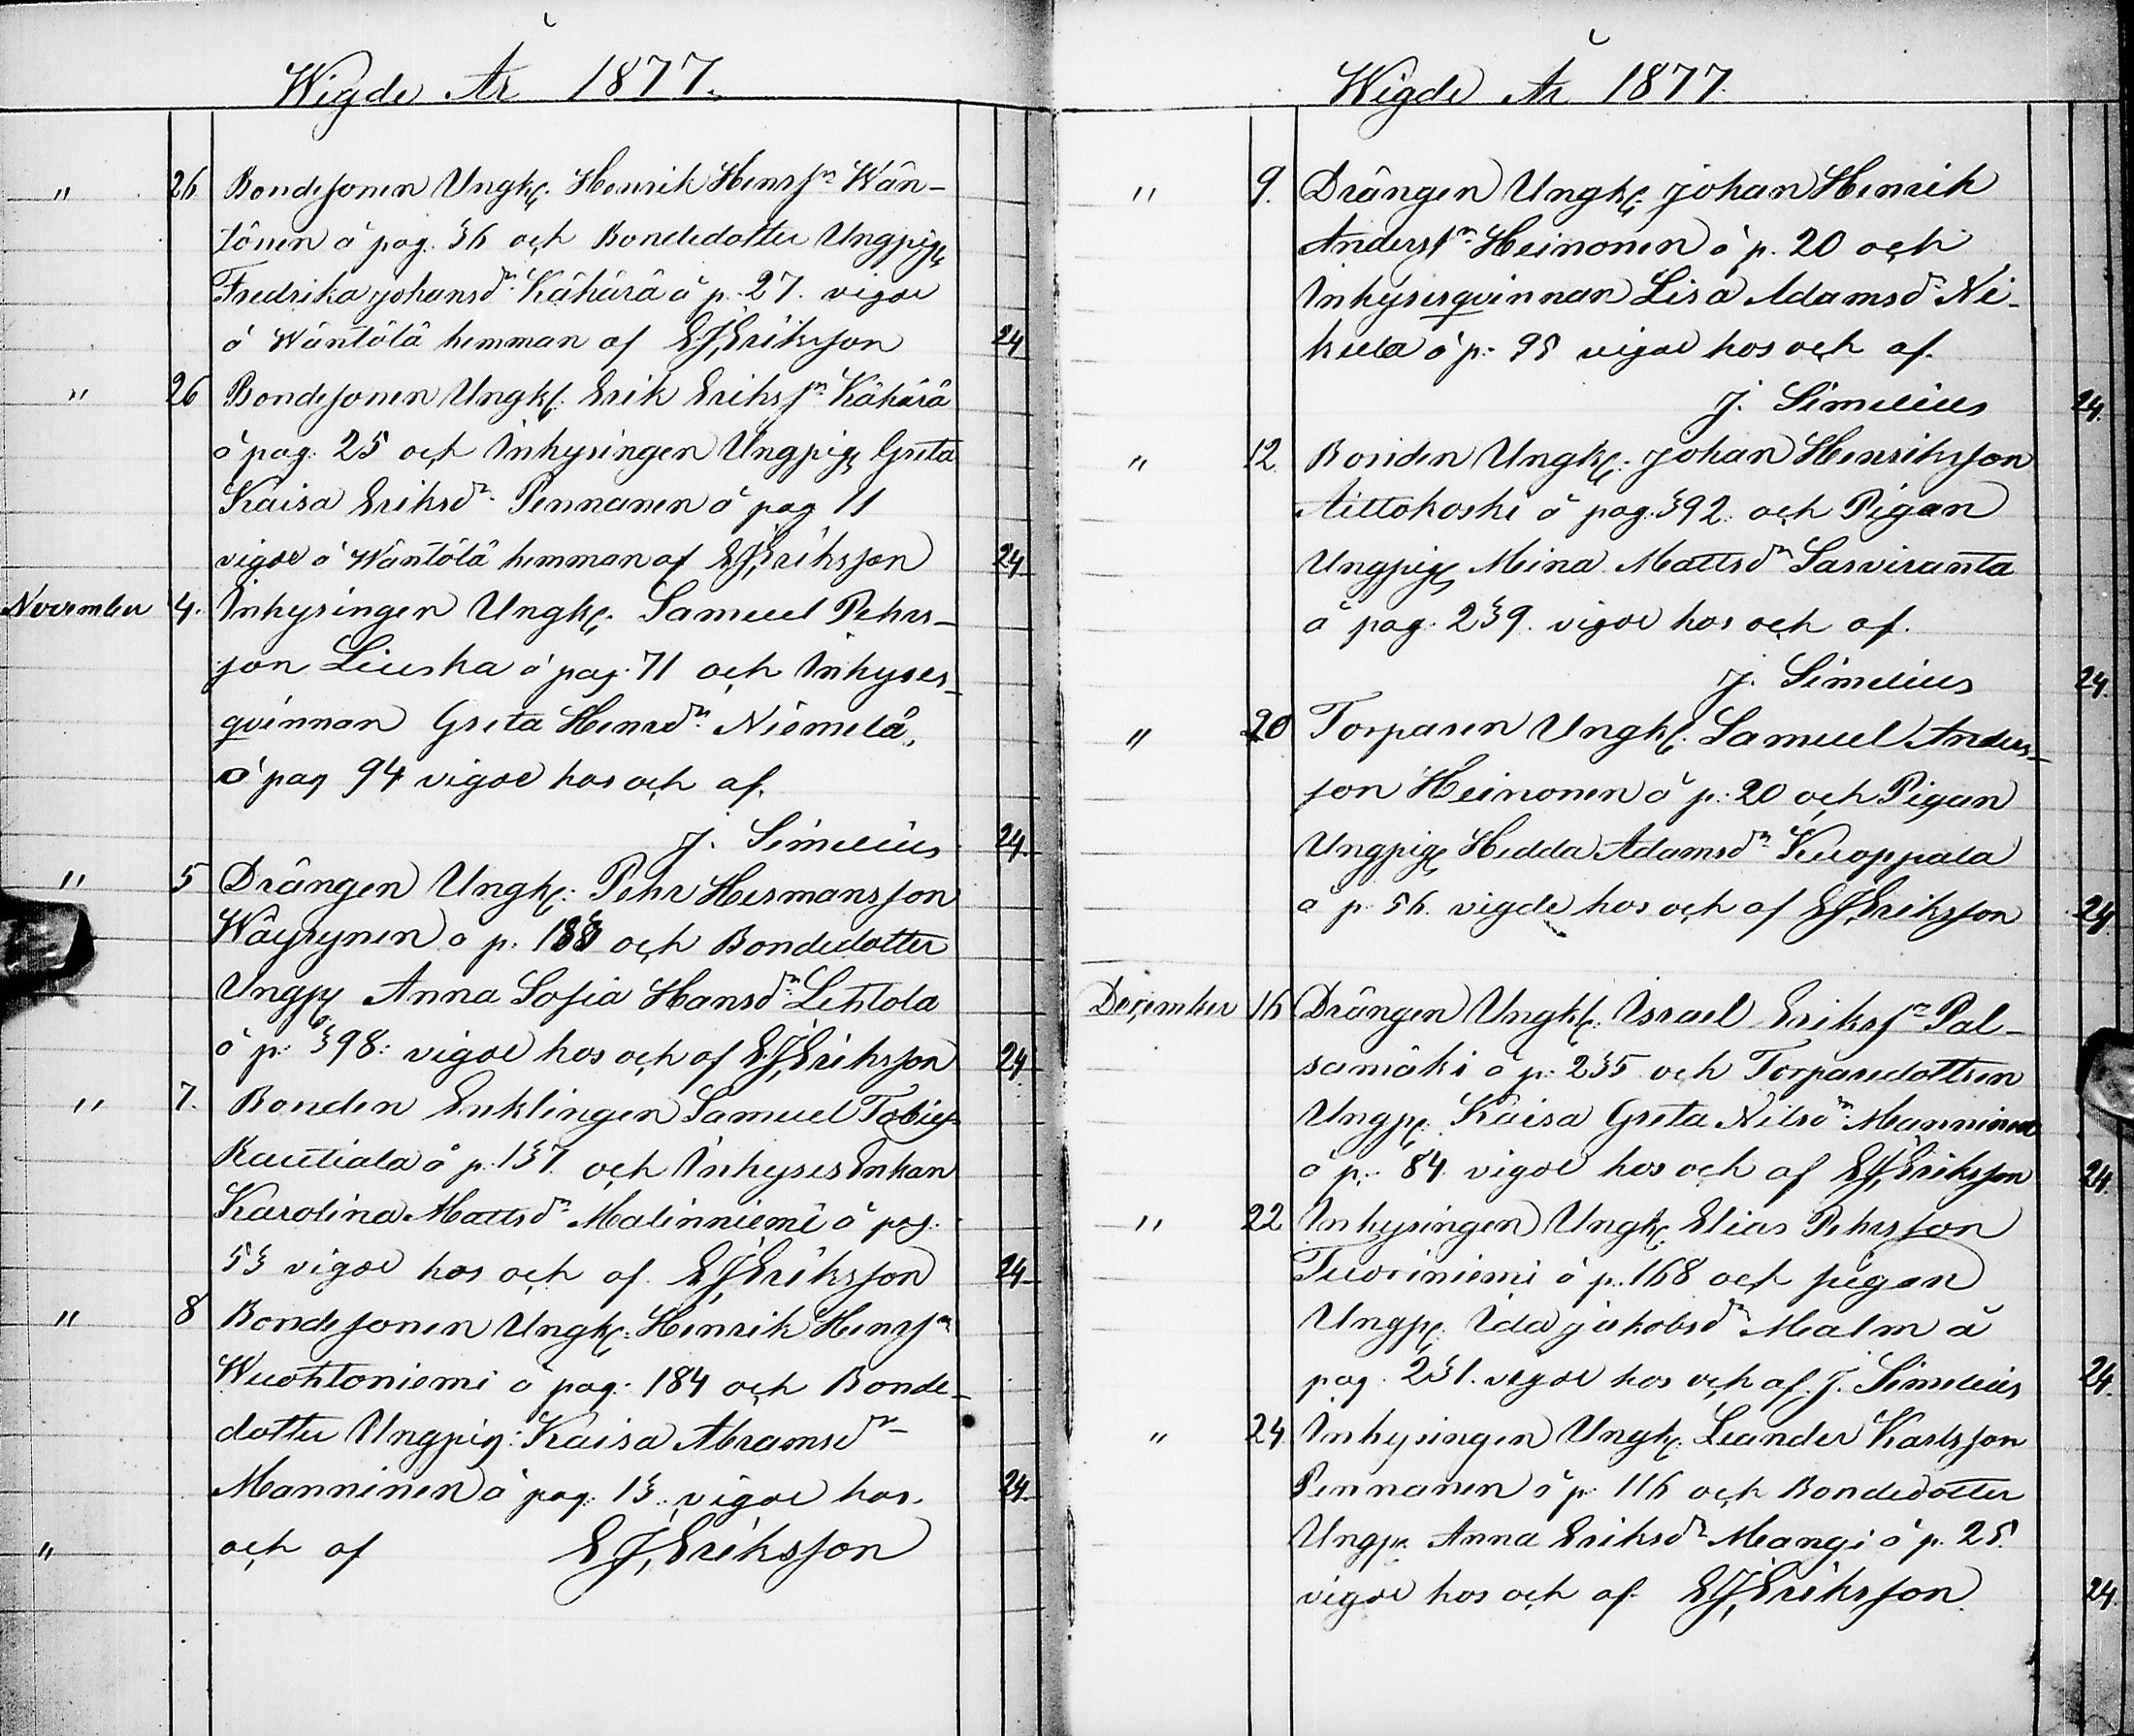 Wigde År 1877.
" 26 Bondesonen Ungk. Henrik Henrsn Wän-
tönen å pag. 36 och Bondedotter Ungpig.
Fredrika Johansdr. Kähärä å p. 27. vigde
å Wäntölä hemman af E.J. Eriksson 24
" 26 Bondesonen Ungk. Erik Erikssn Kähärä
å pag. 25 och Inhysingen Ungpig. Greta
Kaisa Eriksdr. Pennanen å pag 11
vigde å Wäntölä hemman af E.J. Eriksson 24
November 4. Inhysingen Ungk. Samuel Pehrs-
son Liuska å pag. 71 och Inhyses-
qvinnan Greta Henrsdr. Niemelä,
å pag 94 vigde hos och af.
J. Simelius 24.
" 5 Drängen Ungk. Pehr Hermansson
Wäyrynen å p. och Bondedotter
Ungp. Anna Sofia Hansdr. Lehtola
å p. 398: vigde hos och af E.J. Eriksson 24.
" 7. Bonden Enklingen Samuel Tobies
Rautiala å p. 137. och Inhyses Enkan
Karolina Mattsdr. Malinniemi å pag.
53 vigde hos och af. E.J. Eriksson 24
" 8 Bondesonen Ungk. Henrik Henrsn
Wuohtoniemi å pag. 184 och Bonde-
dotter Ungpig: Kaisa Abramsdr-
Manninen å pag. 13. vigde hos. 24.
" och af E.J. Eriksson
Wigde År 1877.
" 9. Drängen Ungk. Johan Henrik
Anderssn. Heinonen å p. 20 och
Inhysesqvinnan Lisa Adamsdr. Ni-
kula å p. 95 vigde hos och af.
J. Simelius 24.
" 12. Bonden Ungk. Johan Henriksson
Aittokoski å pag. 392. och Pigan
Ungpig. Mina Mattsdr Sarviranta
å pag. 239. vigde hos och af.
J. Simelius 24.
" 20 Torparen Ungk. Samuel Anders-
son Heinonen å p. 20 och Pigan
Ungpig. Hedda Adamsdr Kuoppala
å p. 56. vigde hos och af E.J. Eriksson 24.
December 16 Drängen Ungk. Israel Erikssn Pal-
samäki å p. 235 och Torparedottren
Ungp. Kaisa Greta Nilsdr. Manninen
å p. 84. vigde hos och af E.J. Eriksson 24.
" 22 Inhysingen Ungk. Elias Pehrsson
Tuoriniemi å p. 168 och pigan
Ungp. Ida Jakobsdr Malm å
pag. 231. vigde hos och af. J. Simelius 24.
" 24 Inhysingen Ungk. Leander Karlsson
Pennanen å p. 116 och Bondedotter
Ungp. Anna Eriksdr Mangi å p. 25.
vigde hos och af. E.J. Eriksson 24.